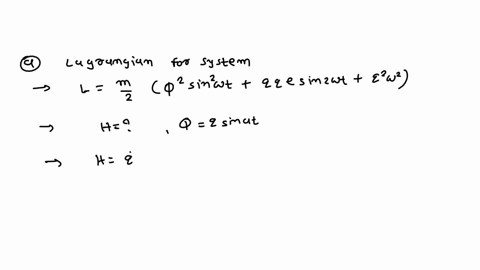 a Lagrangian for system
→ L = m/2 (φ² sin²ωt + q q e sin2ωt + q²ω²)
→ H = ? , Q = q sin ωt
→ H = q̇